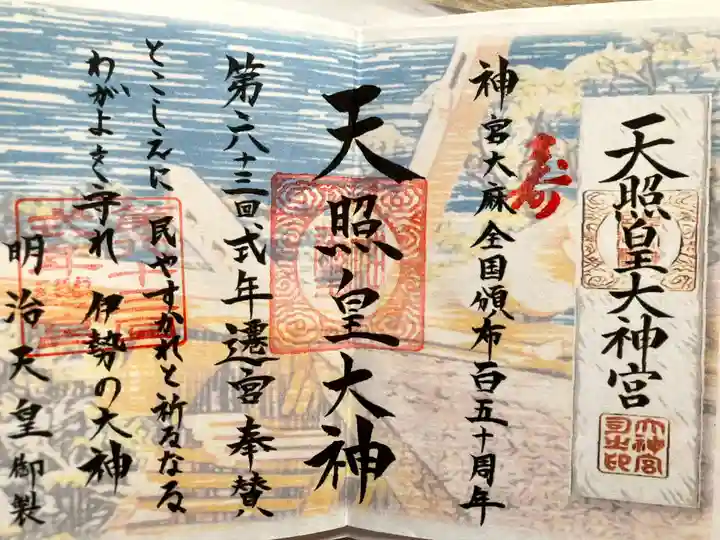 天照皇大神宮
大神宮
司之印
寿
神宮大麻全国頒布百五十周年
天照皇大神
第六十三回式年遷宮奉賛
とこしえに 民やすかれと祈るなる
わがよを守れ 伊勢の大神
明治天皇御製